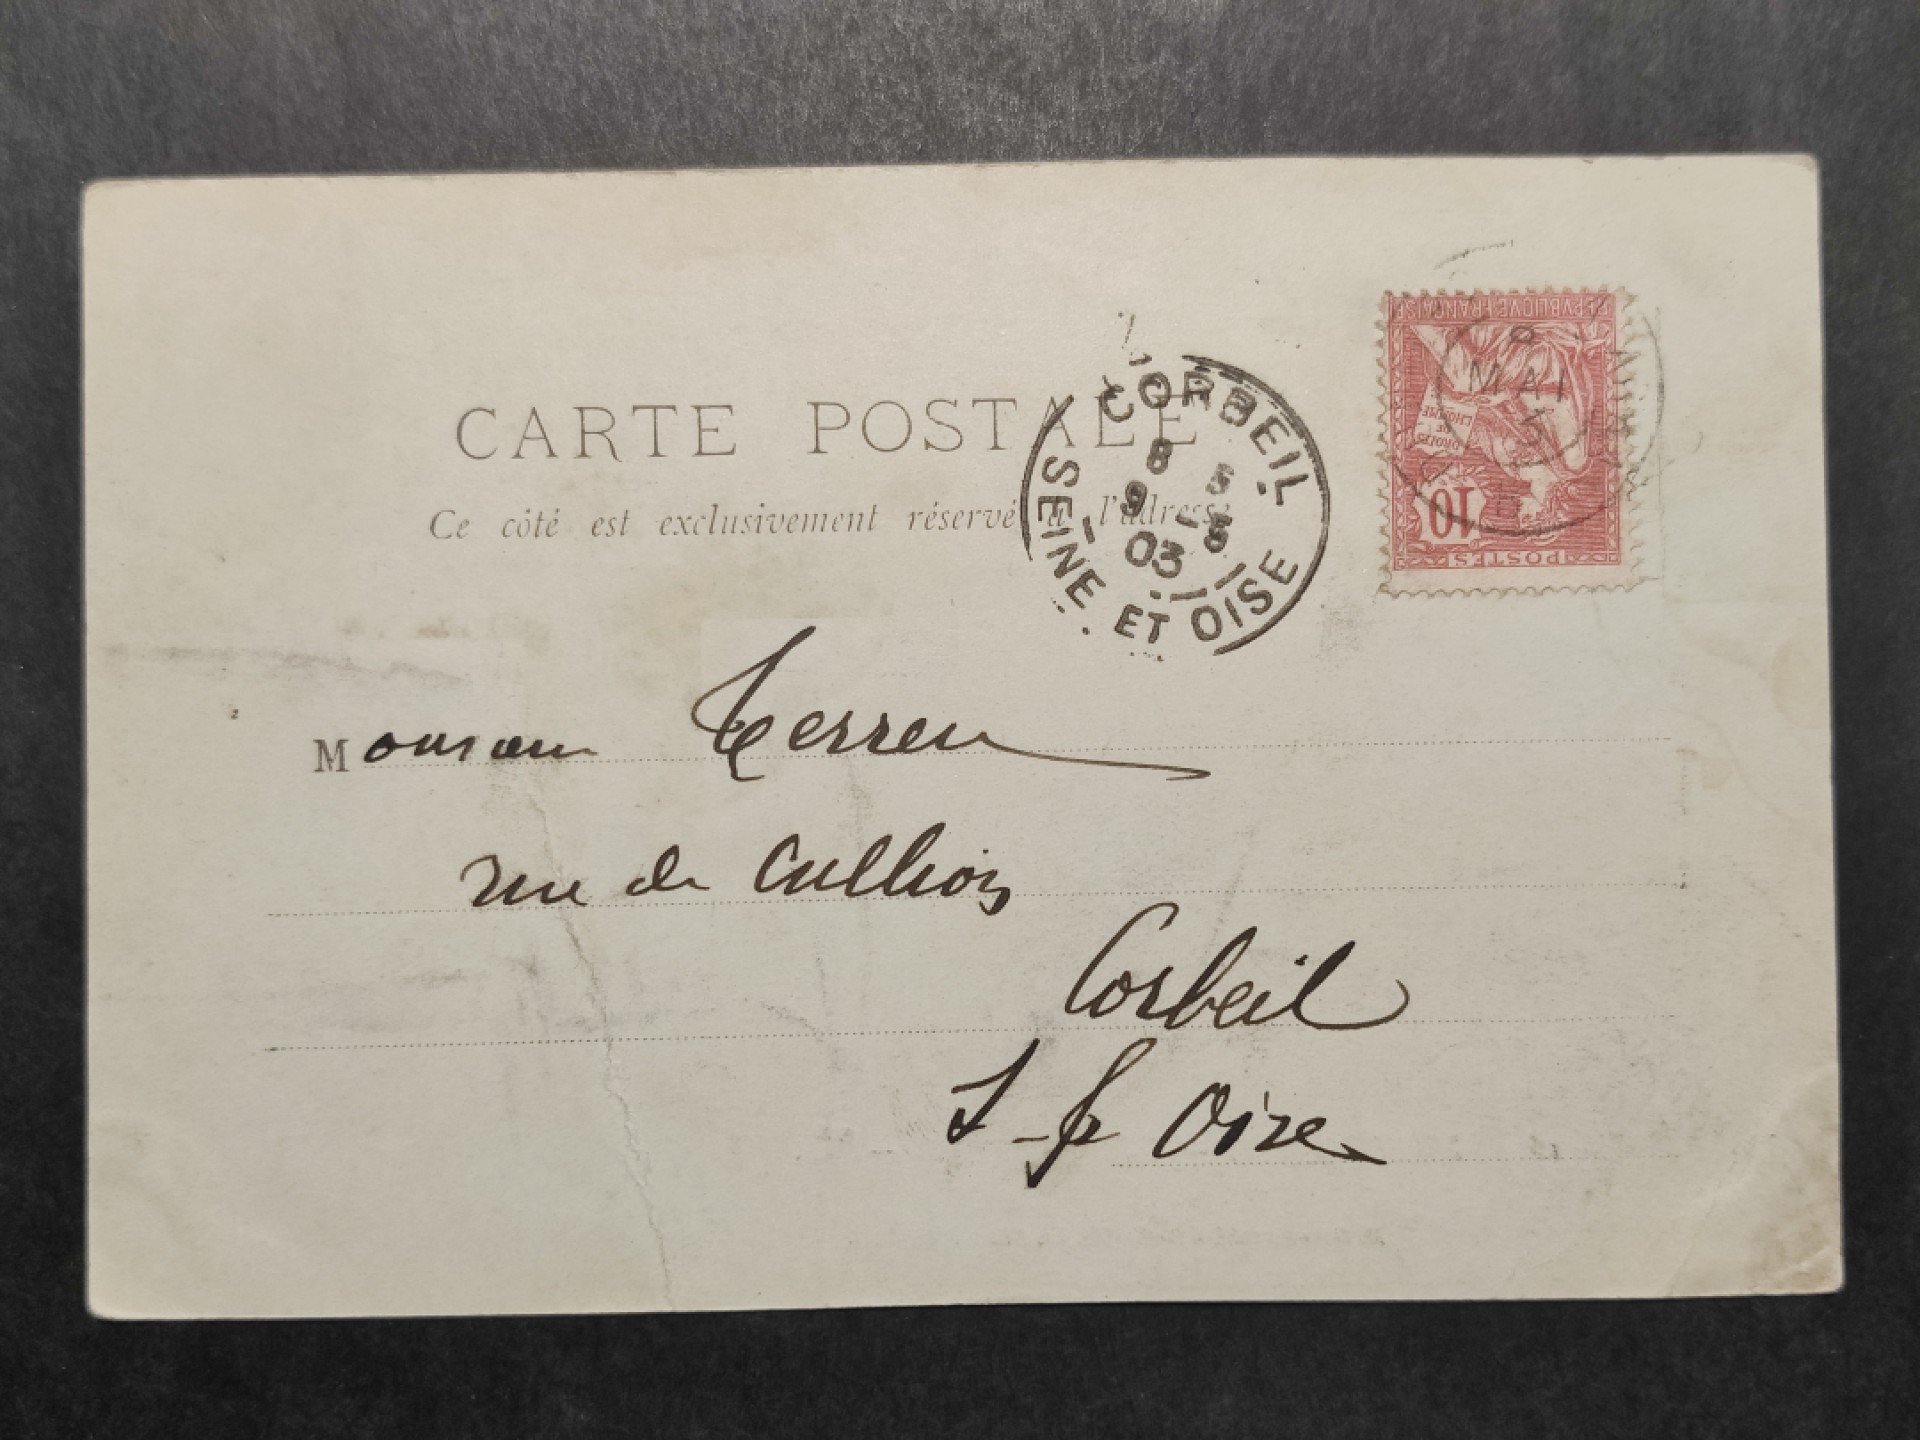 CARTE POSTALE
Ce côté est exclusivement réservé à l'adresse
CORBEIL
8 5
9 - 5
03
SEINE ET OISE
REPVBLIQVE FRANÇAISE
MAI
DROITS
DE
L'HOMME
10
POSTES
Monsieur Terren
rue de
Corbeil
S-&-Oise